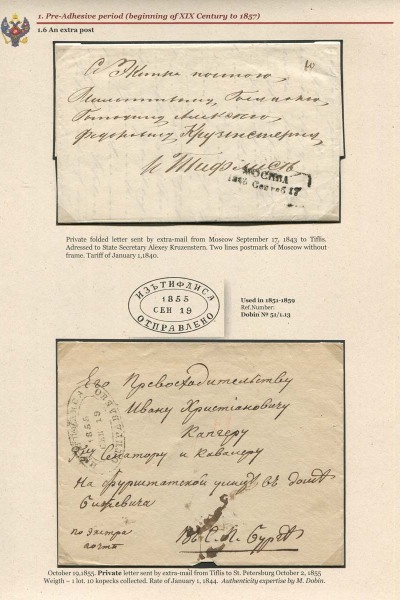 1. Pre-Adhesive period (beginning of XIX Century to 1857)
1.6 An extra post
Съ Экстра почтою,
Милостивому Государю,
Алексею
Федоровичу Крузенштерну,
въ Тифлисъ
МОСКВА
1843 Сентяб 17
Private folded letter sent by extra-mail from Moscow September 17, 1843 to Tiflis.
Adressed to State Secretary Alexey Kruzenstern. Two lines postmark of Moscow without
frame. Tariff of January 1,1840.
ИЗЪТИФЛИСА
1855
СЕН 19
ОТПРАВЛЕНО
Used in 1851-1859
Ref.Number:
Dobin № 51/1.13
Его Превосходительству
Ивану Христіановичу
Капгеру
Сенатору и Кавалеру
1855
СЕН 19
На Фурштатской улицѣ, въ домѣ
по экстра
почтѣ
Въ С. П. Бургъ
October 19,1855. Private letter sent by extra-mail from Tiflis to St. Petersburg October 2, 1855
Weigth – 1 lot. 10 kopecks collected. Rate of January 1, 1844. Authenticity expertise by M. Dobin.